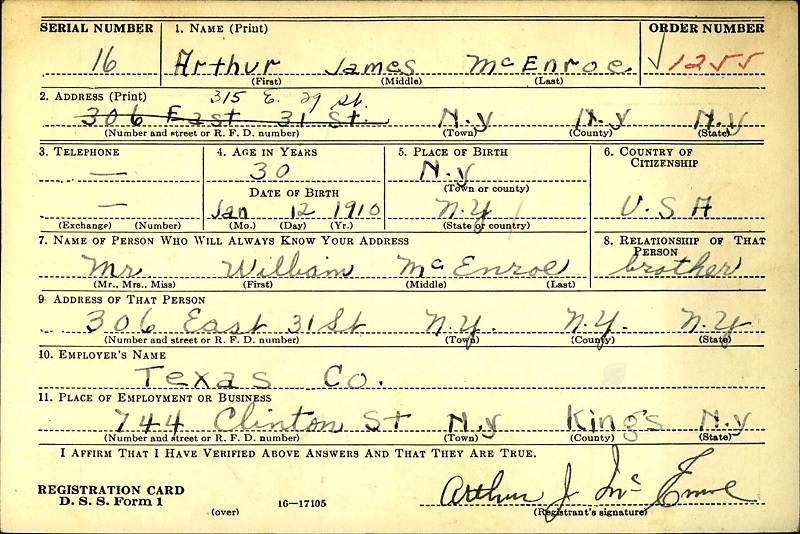 SERIAL NUMBER 1. NAME (Print) ORDER NUMBER
16 Arthur James McEnroe 1255
(First) (Middle) (Last)
2. ADDRESS (Print) 315 E. 29 St.
306 East 31 St. N.y N.y N.y
(Number and street or R. F. D. number) (Town) (County) (State)
3. TELEPHONE 4. AGE IN YEARS 5. PLACE OF BIRTH 6. COUNTRY OF
CITIZENSHIP
— 30 N.y
DATE OF BIRTH (Town or county)
— Jan 12 1910 N.Y U.S A
(Exchange) (Number) (Mo.) (Day) (Yr.) (State or country)
7. NAME OF PERSON WHO WILL ALWAYS KNOW YOUR ADDRESS 8. RELATIONSHIP OF THAT
PERSON
Mr William McEnroe brother
(Mr., Mrs., Miss) (First) (Middle) (Last)
9. ADDRESS OF THAT PERSON
306 East 31 St N.Y. N.Y. N.Y
(Number and street or R. F. D. number) (Town) (County) (State)
10. EMPLOYER'S NAME
Texas Co.
11. PLACE OF EMPLOYMENT OR BUSINESS
744 Clinton St N.y King's N.y
(Number and street or R. F. D. number) (Town) (County) (State)
I AFFIRM THAT I HAVE VERIFIED ABOVE ANSWERS AND THAT THEY ARE TRUE.
REGISTRATION CARD
D. S. S. Form 1 16—17105 Arthur J McEnroe
(over) (Registrant's signature)